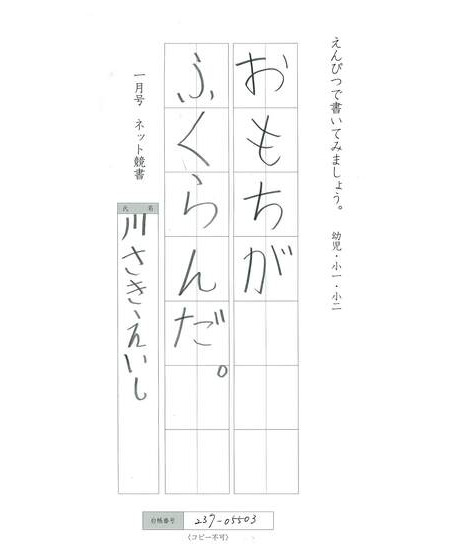 えんぴつで書いてみましょう。 幼児・小一・小二
おもちが
ふくらんだ。
一月号 ネット競書
氏名
川さきえいし
台帳番号 237-05503
〈コピー不可〉